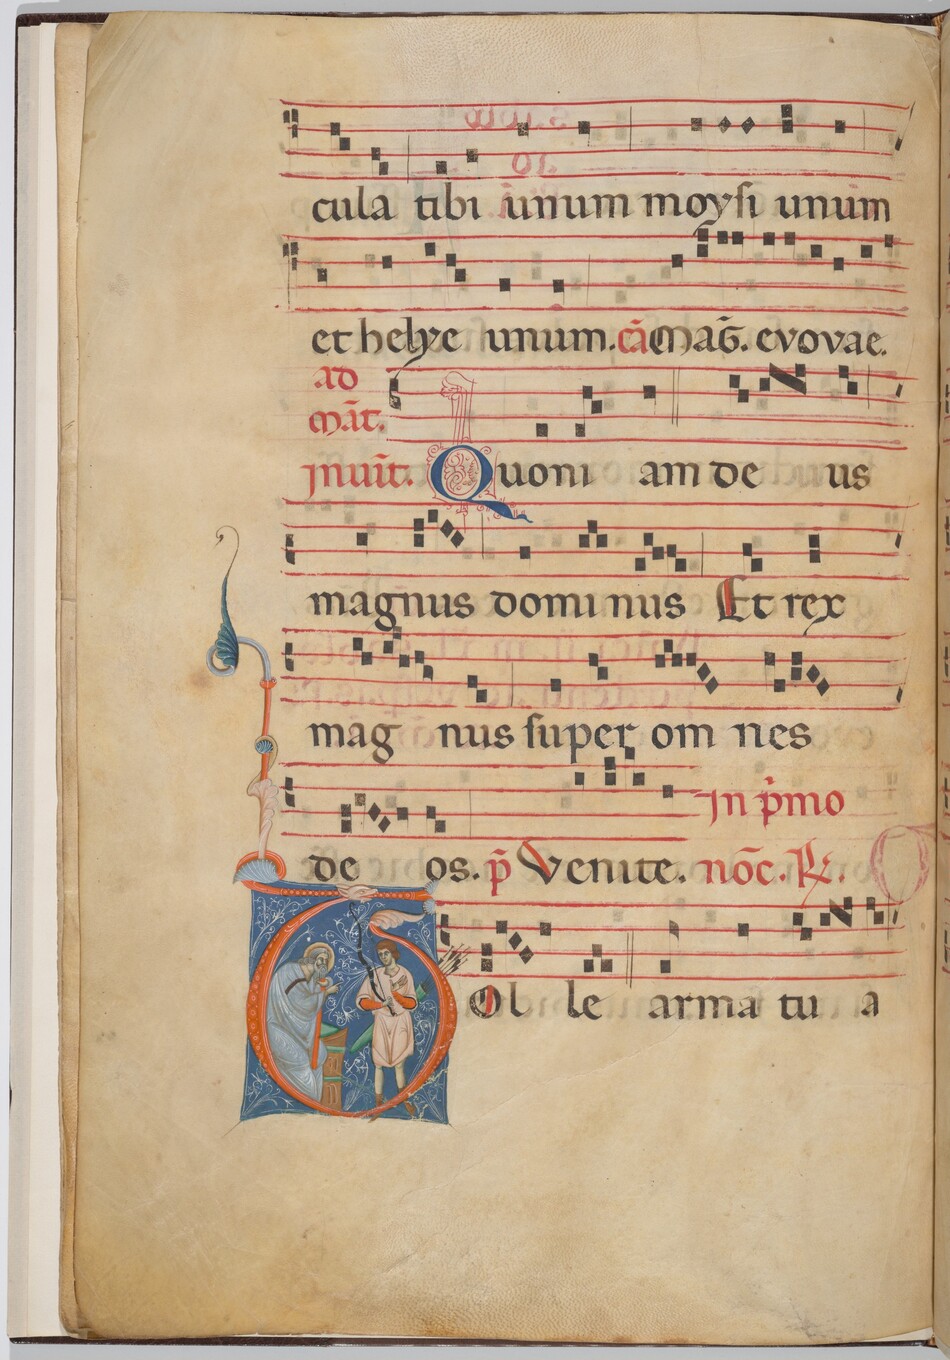 cula tibi unum moysi unum
et helye unum. cā Maḡ. evovae.
ad
māt.
Inuit̄. Quoni am de us
magnus domi nus Et rex
mag nus super om nes
In p̄mo
de os. p̄ Venite. nōc. ℟.
Ol le arma tu a